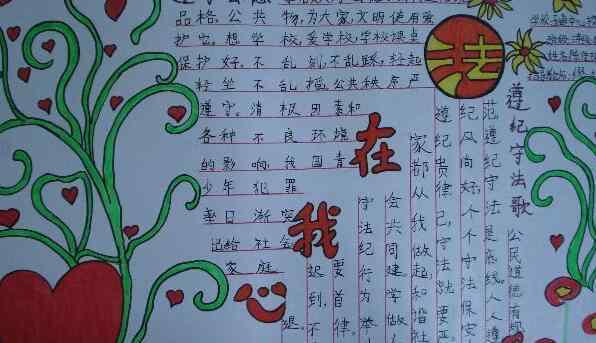 品格,公共物,为大家,文明使用爱
护它,想学校,爱学校,学校桌桌
保护好,不乱刻,不乱踩,轻起
轻坐不乱摇,公共秩序严
遵守,消极因素和
各种不良环境
的影响,我国青
少年犯罪
率日渐突
迅给社会
家庭
法
在
我
心
遵纪守法歌
公民道德有
范遵纪守法是底线,人人遵
纪风向好,个个守法保安
遵纪贵律己,守法就要严
家都从我做起,和谐社
会共同建学做人
守法纪行为举
要首律
迟到,不
退